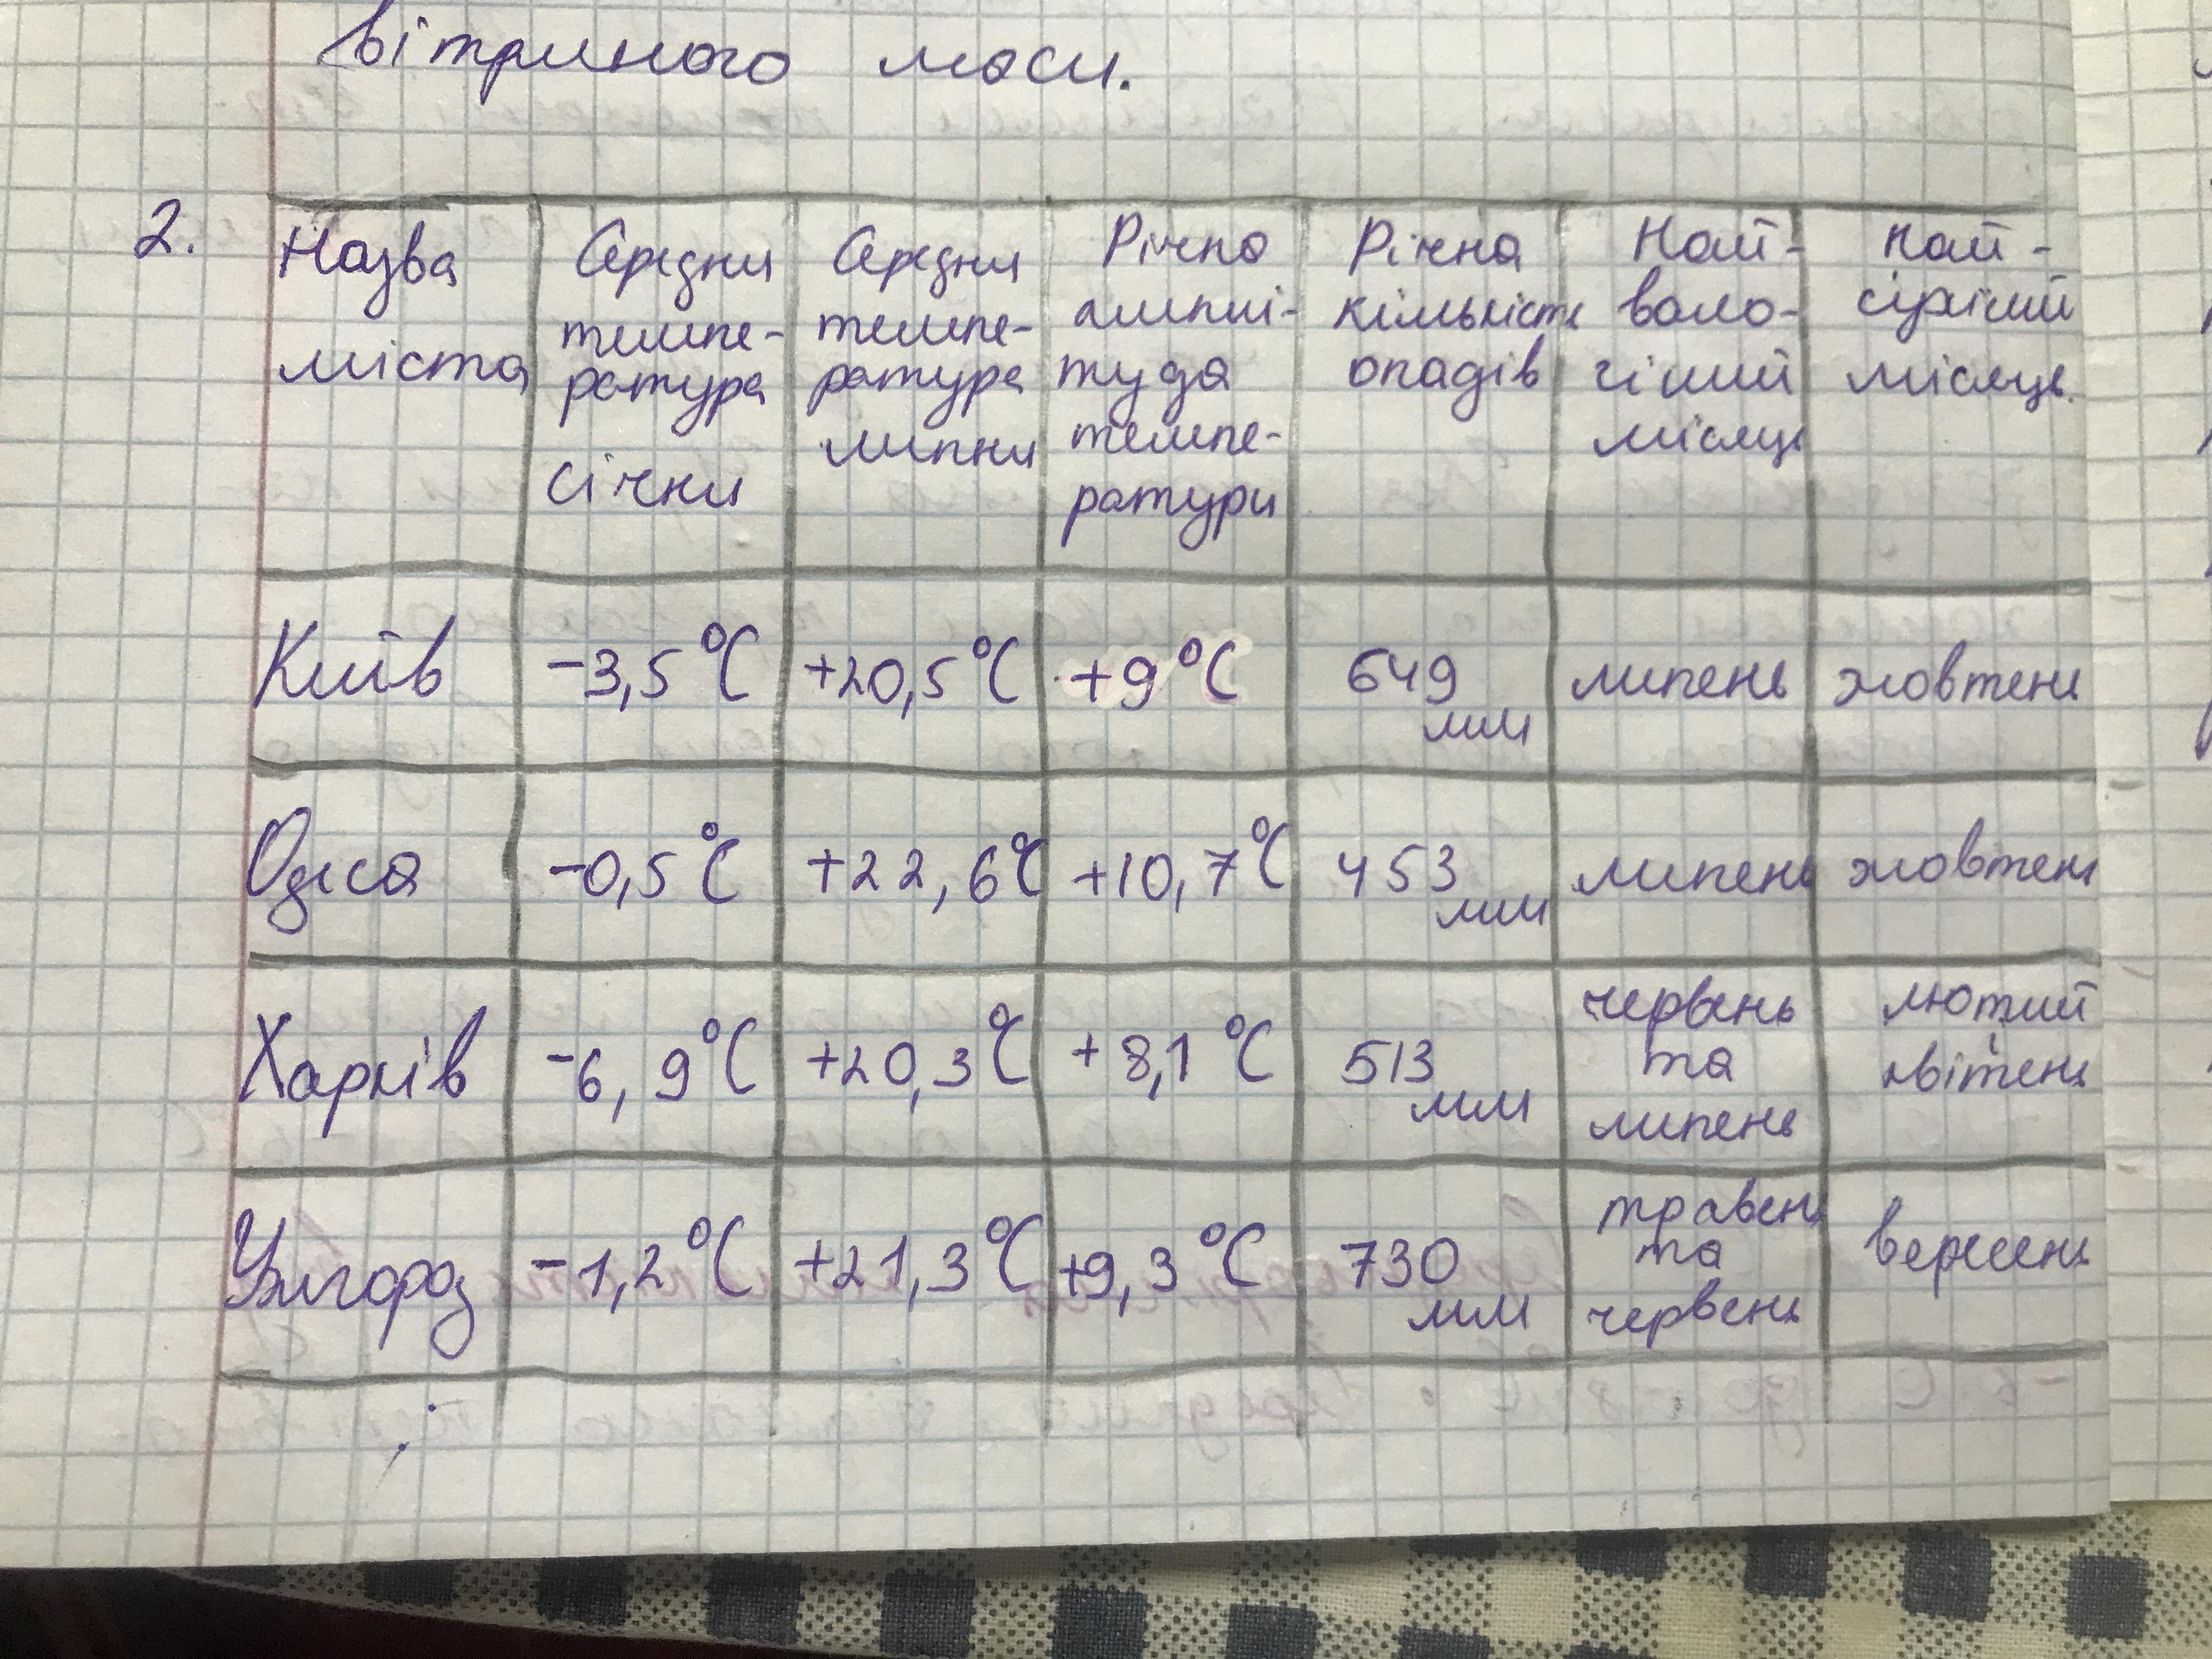 вітряного маси.
2.
Назва міста
Середня температура січня
Середня температура липня
Річна амплітуда температури
Річна кількість опадів
Най-вологіший місяць
Най-сухіший місяць.
Київ -3,5°C +20,5°C +9°C 649 мм липень жовтень
Одеса -0,5°C +22,6°C +10,7°C 453 мм липень жовтень
Харків -6,9°C +20,3°C +8,1°C 513 мм червень та липень лютий квітень
Ужгород -1,2°C +21,3°C +9,3°C 730 мм травень та червень вересень